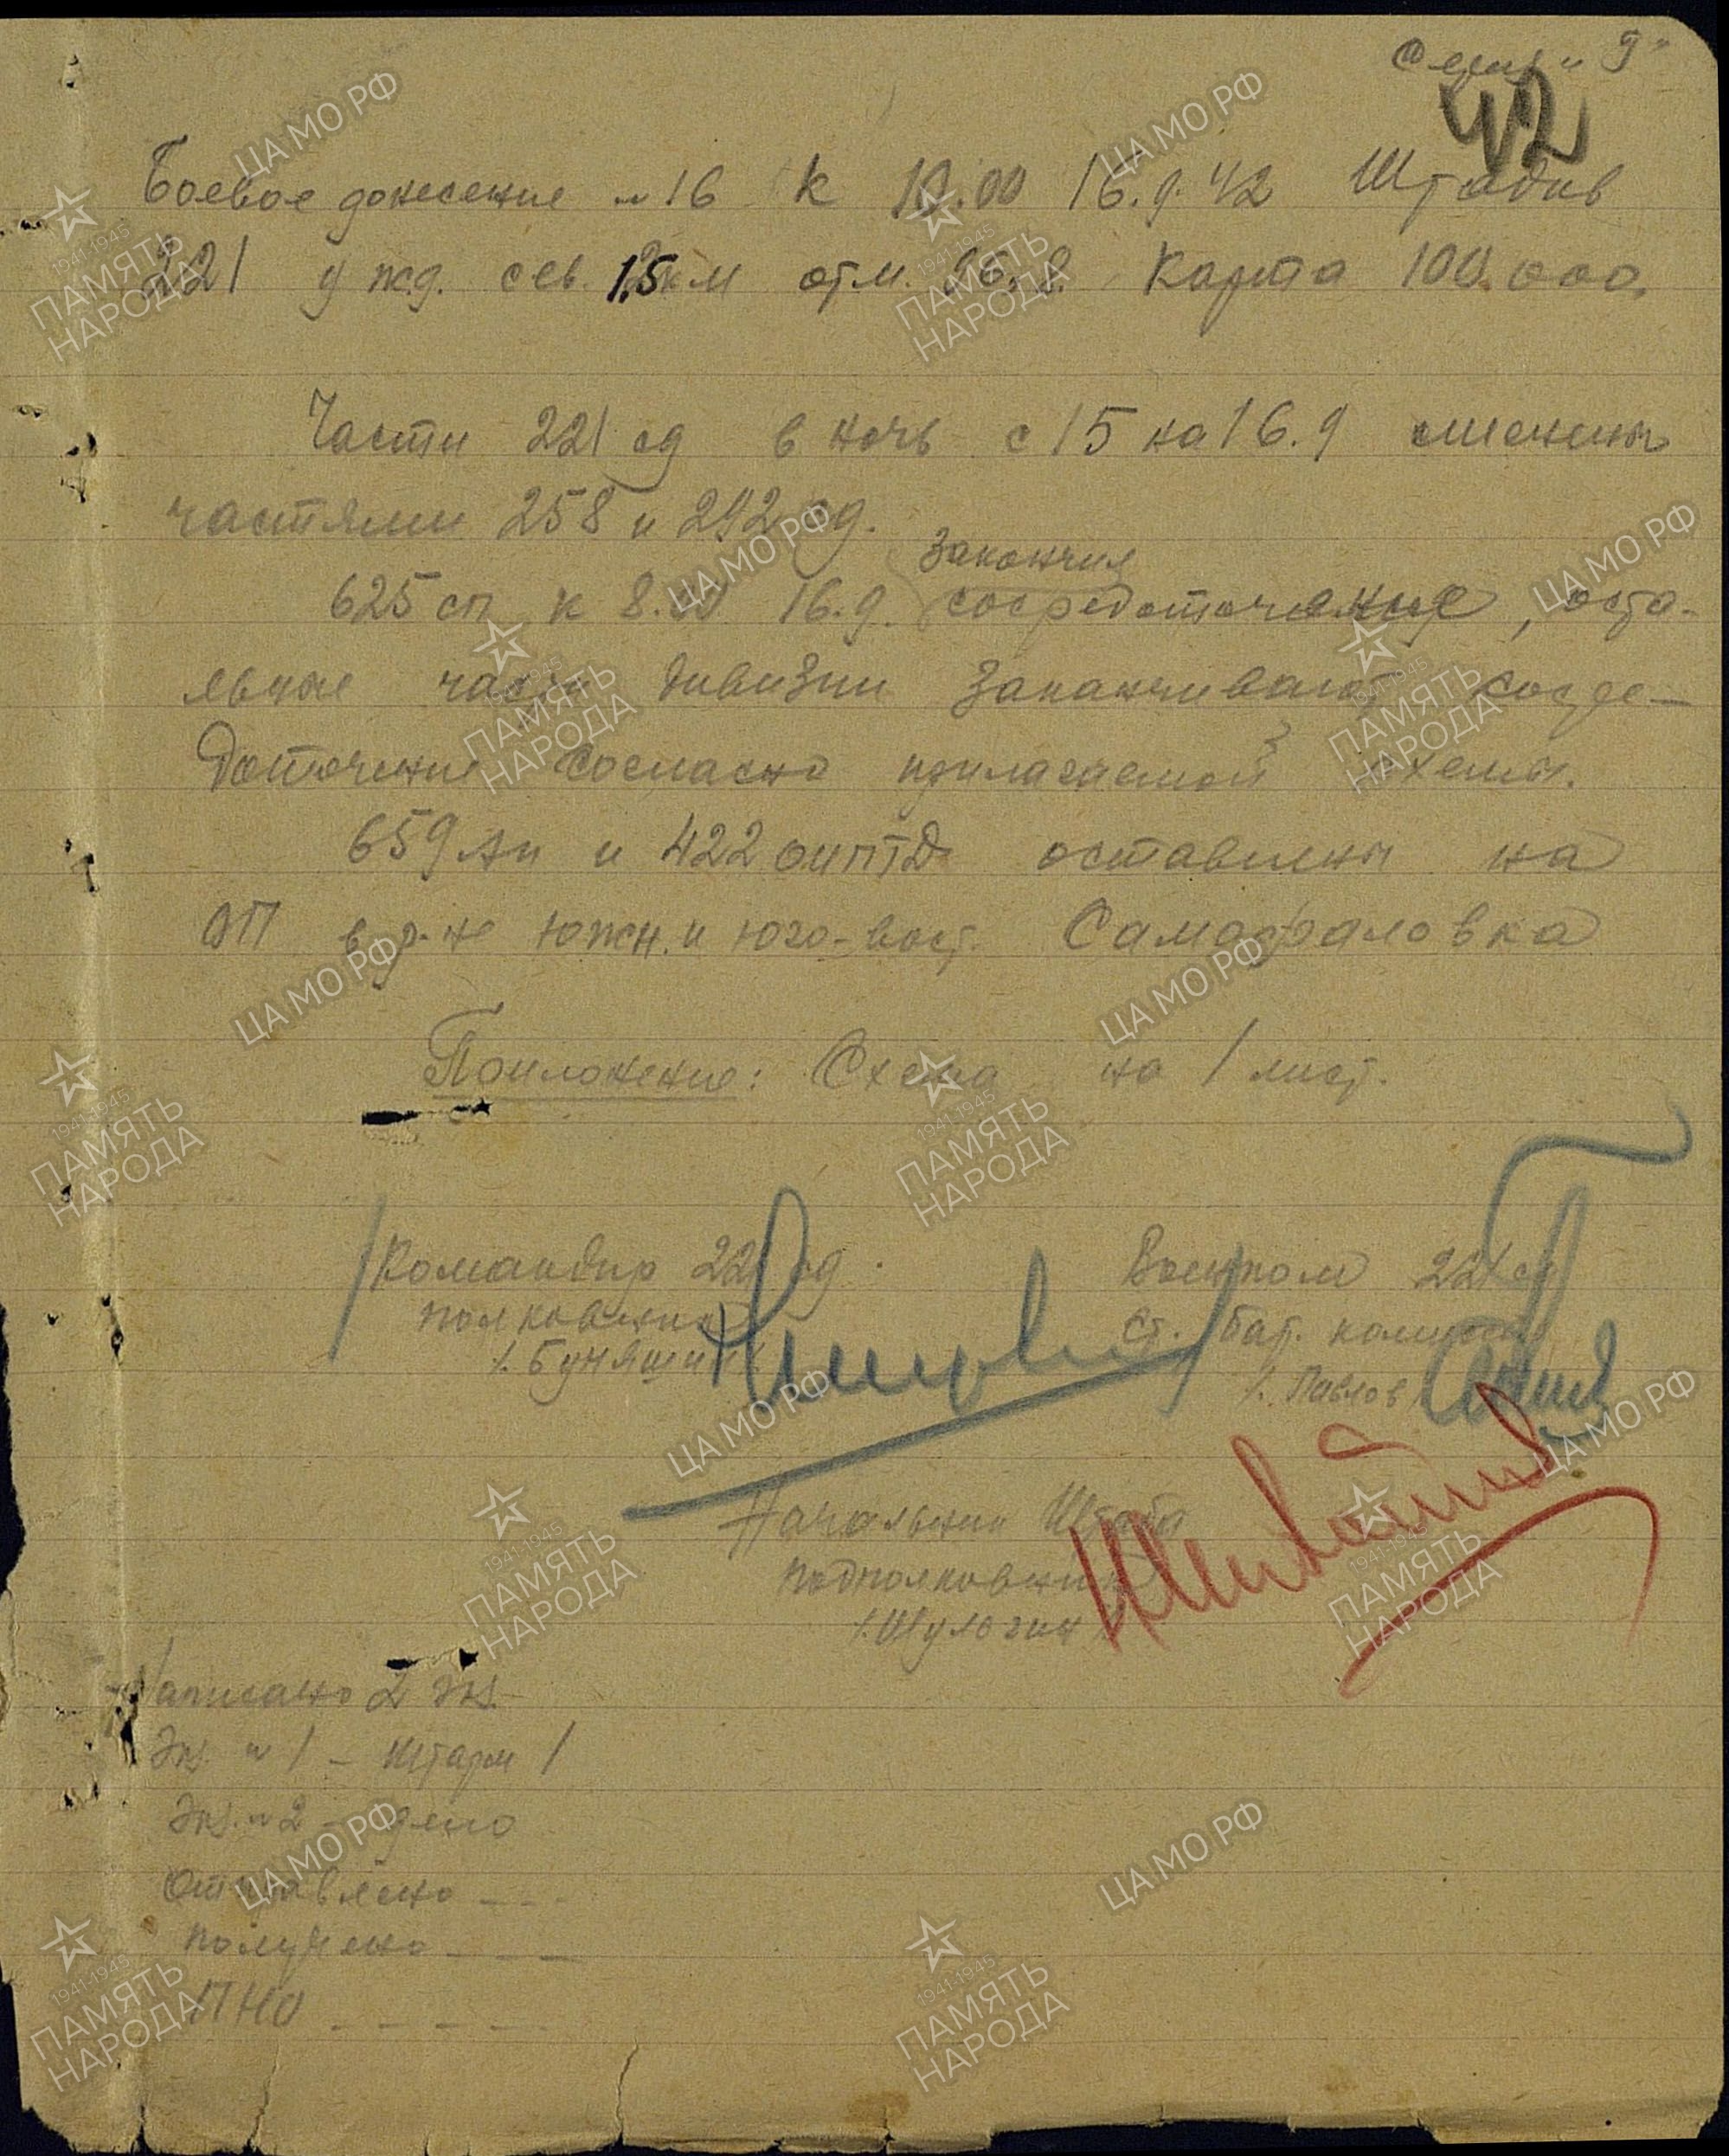 Серия "Г"
42
Боевое донесение №16 к 10.00 16.9.42 Штадив
221 у жд. сев. 1,5 км отм. 96,2. Карта 100.000.
Части 221 сд в ночь с 15 на 16.9 сменены
частями 258 и 292 сд.
закончил
625 сп к 8.00 16.9. сосредоточение, оста-
льные части дивизии заканчивают сосре-
доточение согласно прилагаемой схемы.
659 ап и 422 оиптд оставлены на
ОП в р-не южн. и юго-вост. Самофаловка
Приложение: Схема на 1 лист.
Командир 221 сд.
полковник
/. Буняшин
Военком 221 сд
Ст. бат. комиссар
/. Павлов
Начальник Штаба
подполковник
/. Шульгин /
Написано 2 экз.
Экз. №1 – Штарм 1
Экз. №2 – дело
Отправлено – – –
Получено – – –
ПНО – – – – –
ЦА МО РФ
1941-1945
ПАМЯТЬ
НАРОДА